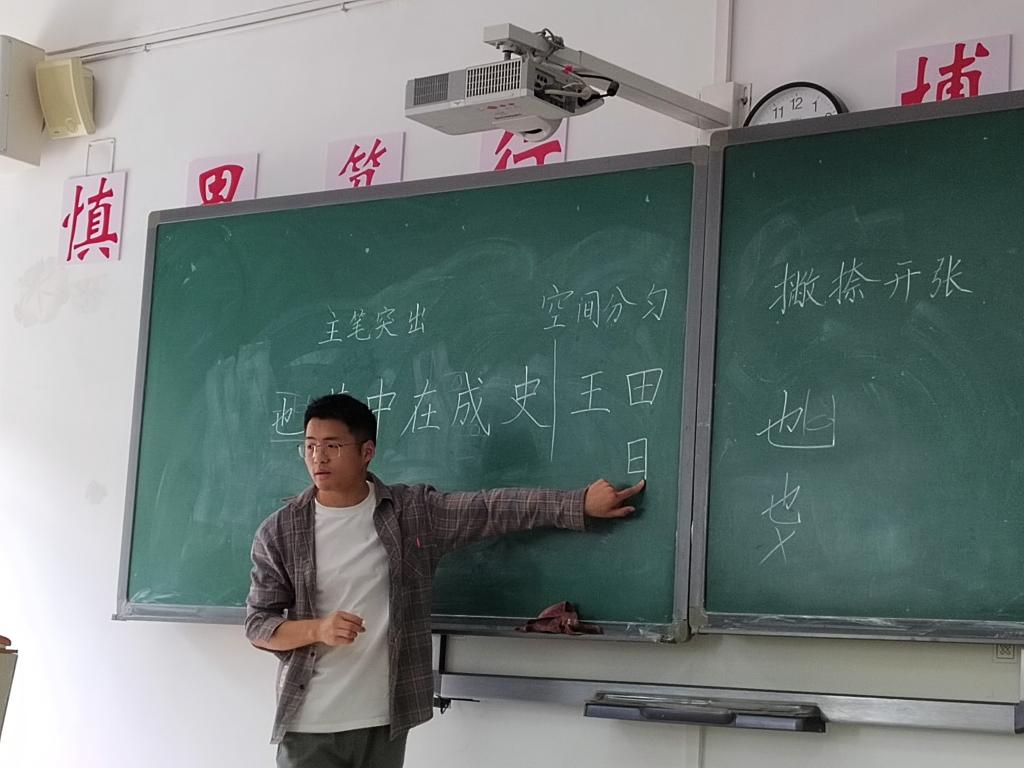 慎 思 笃 行 博
主笔突出
空间分匀
也 中在成史 王田
日
撇捺开张
也
也
11 12 1